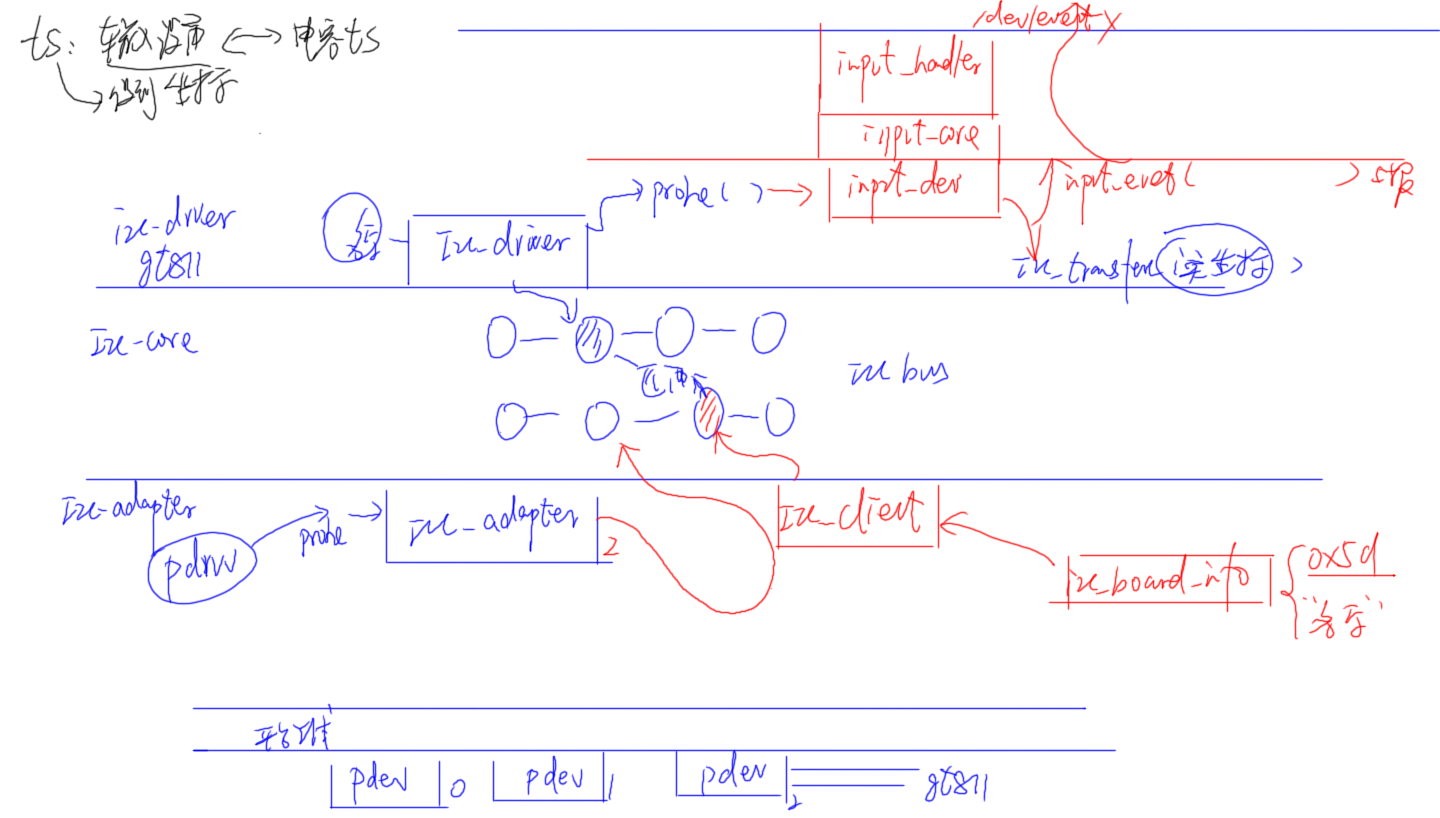 ts: 输入设备 <—> 电容ts
得到坐标
/dev/eventX
input_handler
input-core
input_dev
probe( )
input_event( ) 上报
i2c-driver
gt811
名字
I2c_driver
i2c_transfer(读坐标)
I2c-core
i2c bus
I2c-adapter
pdrv
probe
i2c_adapter
2
I2c_client
i2c_board_info
0x5d
"名字"
平台总线
pdev 0
pdev 1
pdev 2
gt811